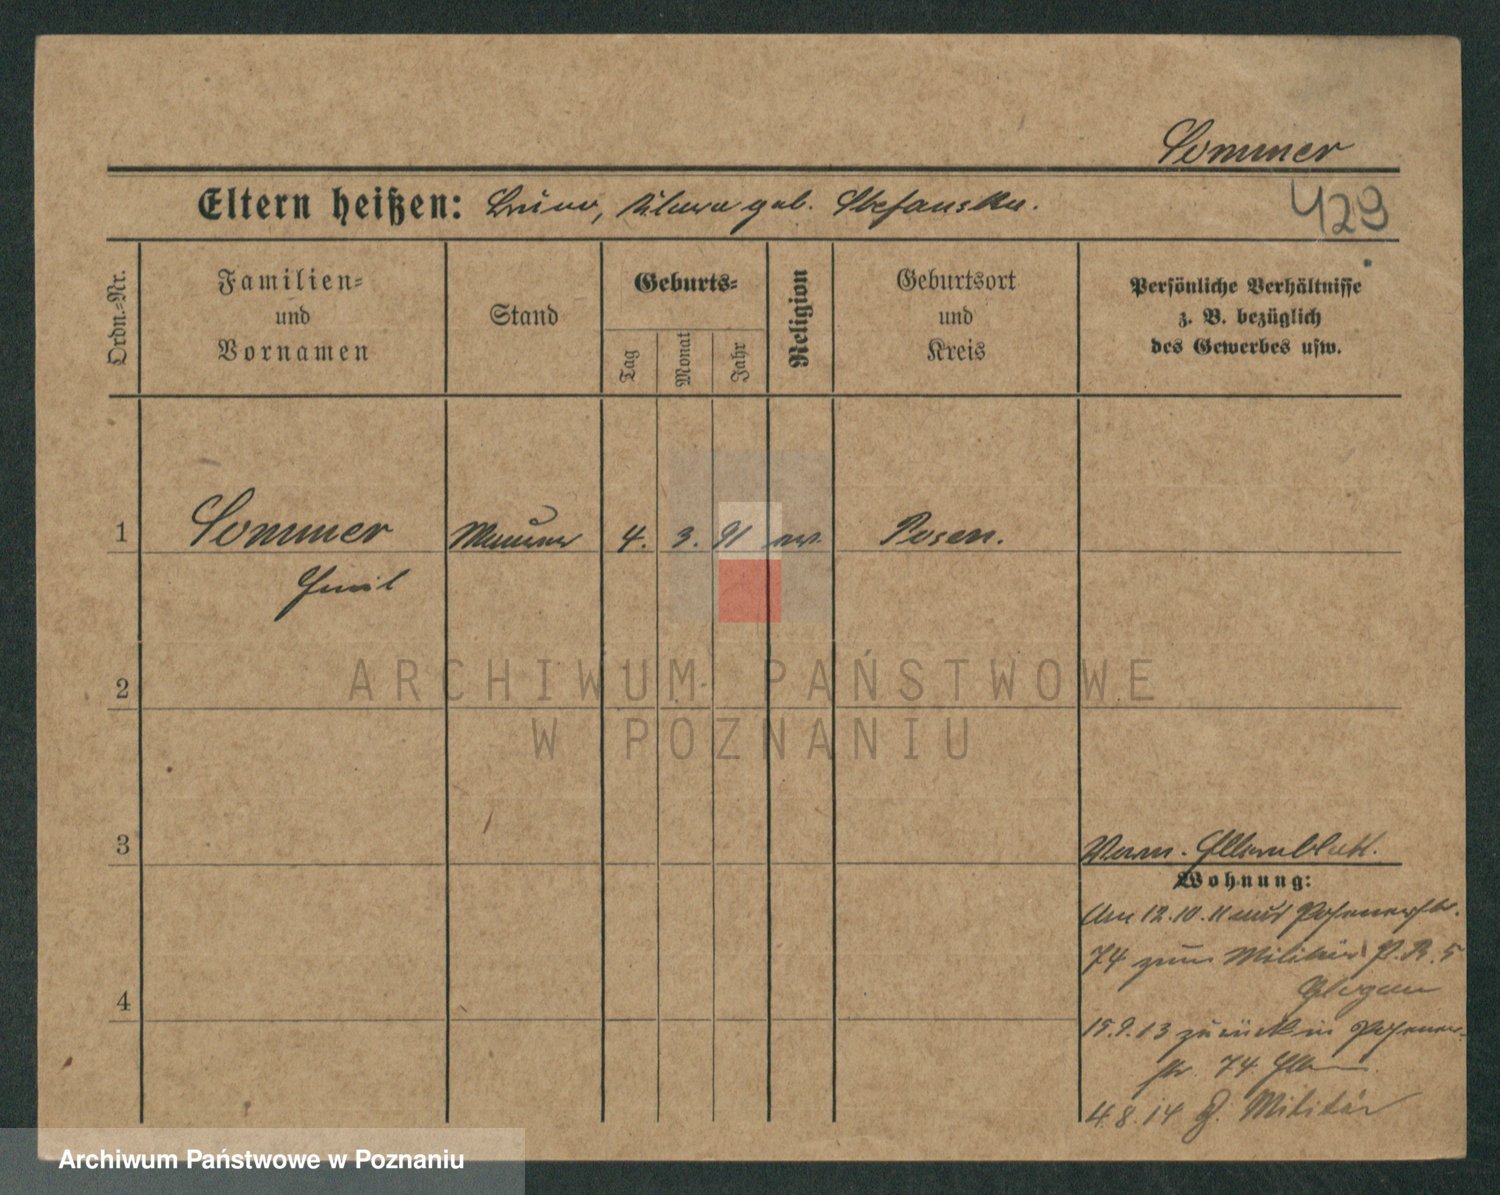 Sommer
Eltern heißen: Bruno, Klara geb. Stefanska.
429
Ordn.-Nr.
Familien=
und
Vornamen
Stand
Geburts=
Tag
Monat
Jahr
Religion
Geburtsort
und
Kreis
Persönliche Verhältnisse
z. B. bezüglich
des Gewerbes usw.
1
Sommer
Maurer
4.
3.
91
Posen.
Emil
2
3
Elternblatt.
Wohnung:
Am 12.10.11 aus Posenerstr.
74 zum Militär P. R. 5
Glogau
15.9.13 zurück in Posener-
str. 74
4.8.14 z. Militär
4
ARCHIWUM PAŃSTWOWE
W POZNANIU
Archiwum Państwowe w Poznaniu